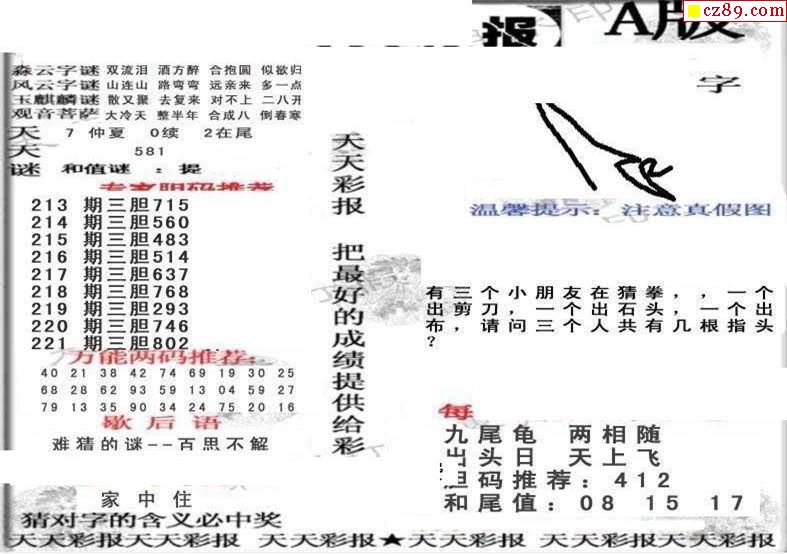 cz89.com
报 A版
森云字谜 双流泪 酒方醉 合抱圆 似欲归
风云字谜 山连山 路弯弯 远亲来 多一点
玉麒麟谜 散又聚 去复来 对不上 二八开
观音菩萨 大冷天 整半年 合成八 倒春寒
天 7 仲夏 0续 2在尾
天 581
谜 和值谜 : 提
专家胆码推荐
213 期三胆715
214 期三胆560
215 期三胆483
216 期三胆514
217 期三胆637
218 期三胆768
219 期三胆293
220 期三胆746
221 期三胆802
万能两码推荐:
40 21 38 42 74 69 19 30 25
68 28 62 93 59 13 04 59 27
79 13 35 90 34 24 75 20 16
歇后语
难猜的谜--百思不解
家中住
猜对字的含义必中奖
天天彩报 把最好的成绩提供给彩
字
温馨提示: 注意真假图
有三个小朋友在猜拳，，一个
出剪刀，一个出石头，一个出
布，请问三个人共有几根指头
？
每
九尾龟 两相随
出头日 天上飞
胆码推荐: 412
和尾值: 08 15 17
天天彩报天天彩报 天天彩报★天天彩报 天天彩报